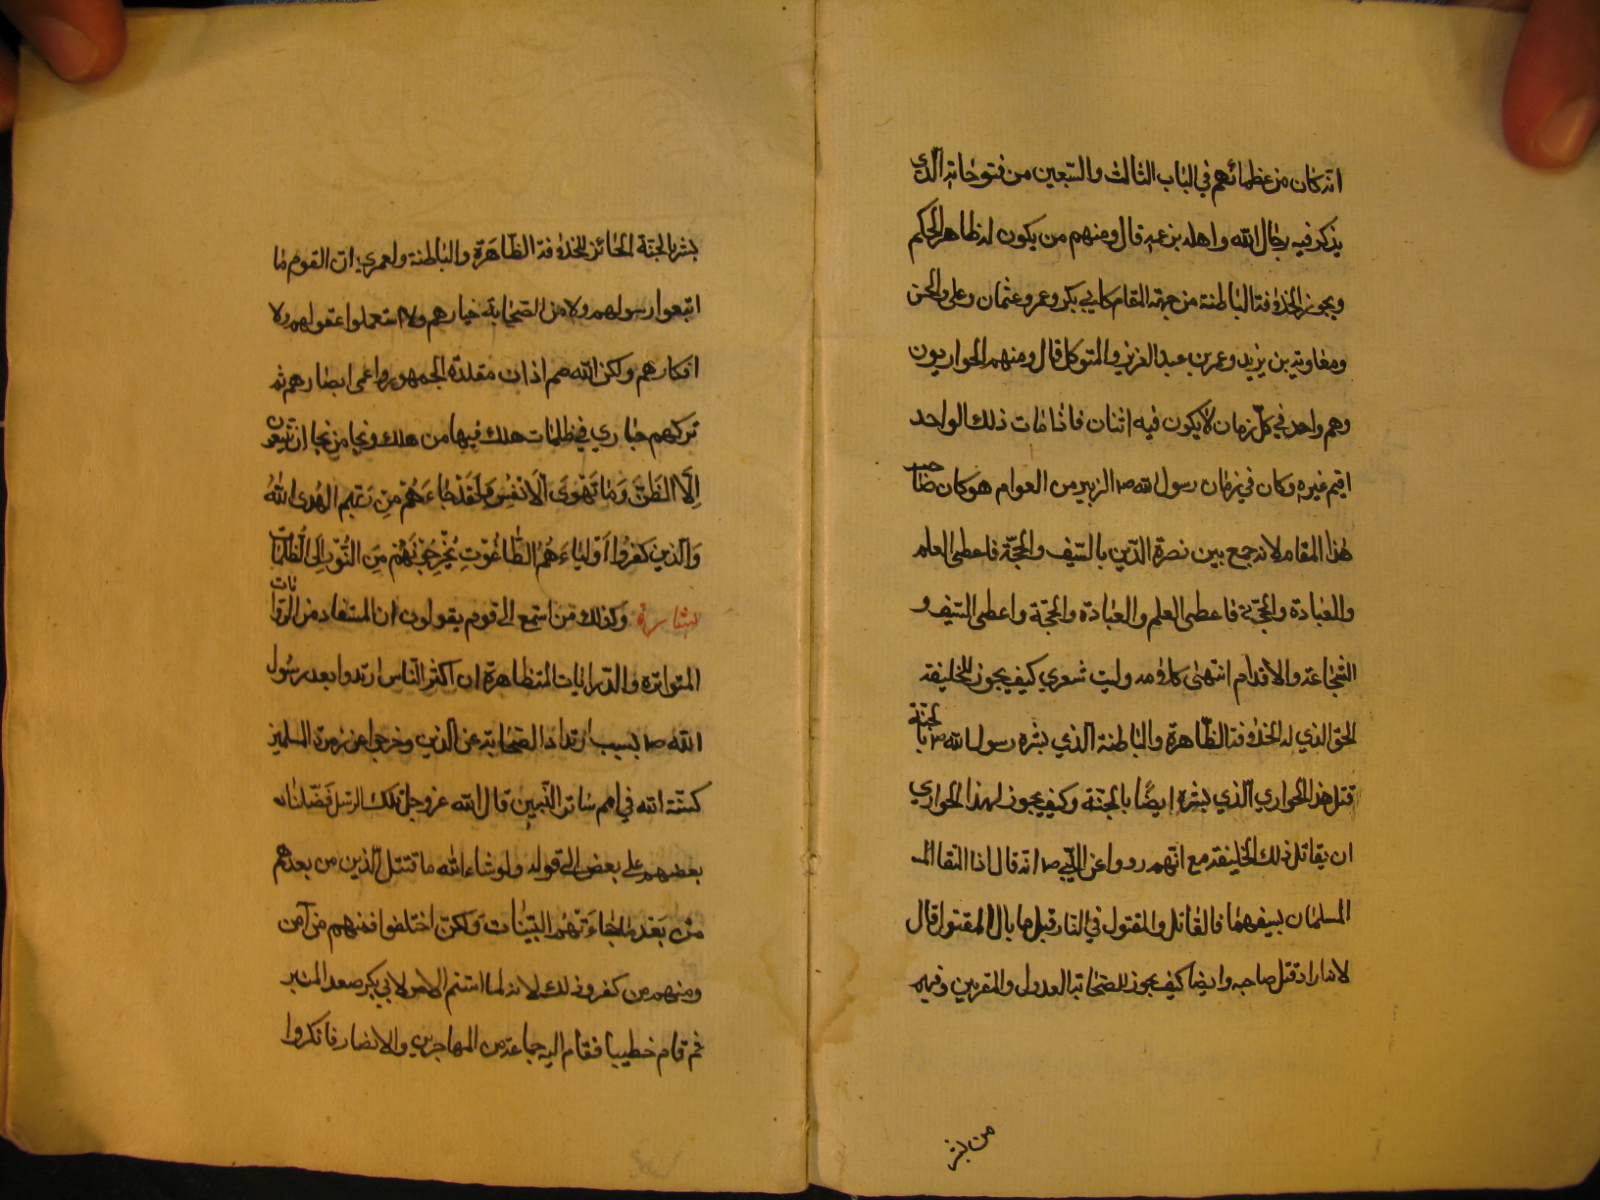 انه كان من عظمائهم في الباب الثالث والسبعين من فتوحاته الذي
يذكر فيه رجال الله واهله بزعمه قال ومنهم من يكون له ظاهر الحكم
ويجوز الخلافة الباطنة من جهة المقام كابي بكر وعمر وعثمان وعلي والحسن
ومعاوية بن يزيد وعمر بن عبد العزيز والمتوكل قال ومنهم الحواريون
وهم واحد في كل زمان لا يكون فيه اثنان فاذا مات ذلك الواحد
اقيم غيره وكان في زمان رسول الله ص الزبير من العوام هو كان صاحب
هذا المقام لانه جمع بين نصرة الدين بالسيف والحجة فاعطى العلم
والعبادة والحجة فاعطى العلم والعبادة والحجة واعطى السيف و
الشجاعة والاقدام انتهى كلامه وليت شعري كيف يجوز للخليفة
الحق الذي له الخلافة الظاهرة والباطنة الذي بشره رسول الله ص بالجنة
قتل هذا الحواري الذي بشره ايضًا بالجنة وكيف يجوز لهذا الحواري
ان يقاتل ذلك الخليفة مع انهم رووا عن النبي ص انه قال اذا التقا المـ
المسلمان بسيفهما فالقاتل والمقتول في النار قيل ما بال المقتول قال
لانه اراد قتل صاحبه وايضا كيف يجوز للصحابة العدول والمقربين وفيهم
من بشر
بشر بالجنة الحائز للخلافة الظاهرة والباطنة ولعمري ان القوم ما
اتبعوا رسولهم ولا من الصحابة خيارهم ولا استعملوا عقولهم ولا
افكارهم ولكن الله صم اذان مقلدة الجمهور واعمى ابصارهم ثم
تركهم حيارى في ظلمات هلك فيها من هلك ونجا من نجا ان تتبعون
إلا الظن وما تهوى الأنفس ولقد جاءهم من ربهم الهدى الله
والذين كفروا أولياءهم الطاغوت يخرجونهم من النور إلى الظلمات
بشارة وكذلك من استمع الى قوم يقولون ان المستفاد من الروايات
المتواترة والدرايات المتظاهرة ان اكثر الناس ارتدوا بعد رسول
الله ص بسبب ارتداد الصحابة عن الدين وخرجوا عن زمرة المسلمين
كسنة الله في امم سائر النبيين قال الله عز وجل تلك الرسل فضلنا
بعضهم على بعض الى قوله ولو شاء الله ما اقتتل الذين من بعدهم
من بعد ما جاءتهم البينات ولكن اختلفوا فمنهم من آمن
ومنهم من كفر وذلك لانه لما استتم الامر لابي بكر صعد المنبر
ثم قام خطيبا فقام اليه جماعة من المهاجرين والانصار فانكروا